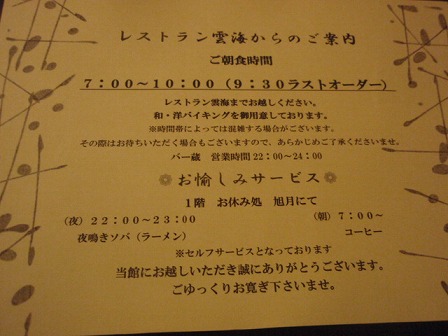 レストラン雲海からのご案内
ご朝食時間
7:00～10:00(9:30ラストオーダー)
レストラン雲海までお越しください。
和・洋バイキングを御用意しております。
※時間帯によっては混雑する場合がございます。
その際はお待ちいただく場合もございますので、あらかじめご了承くださいませ。
バー蔵 営業時間22:00～24:00
お愉しみサービス
1階 お休み処 旭月にて
(夜)22:00～23:00 (朝)7:00～
夜鳴きソバ(ラーメン) コーヒー
※セルフサービスとなっております
当館にお越しいただき誠にありがとうございます。
ごゆっくりお寛ぎ下さいませ。